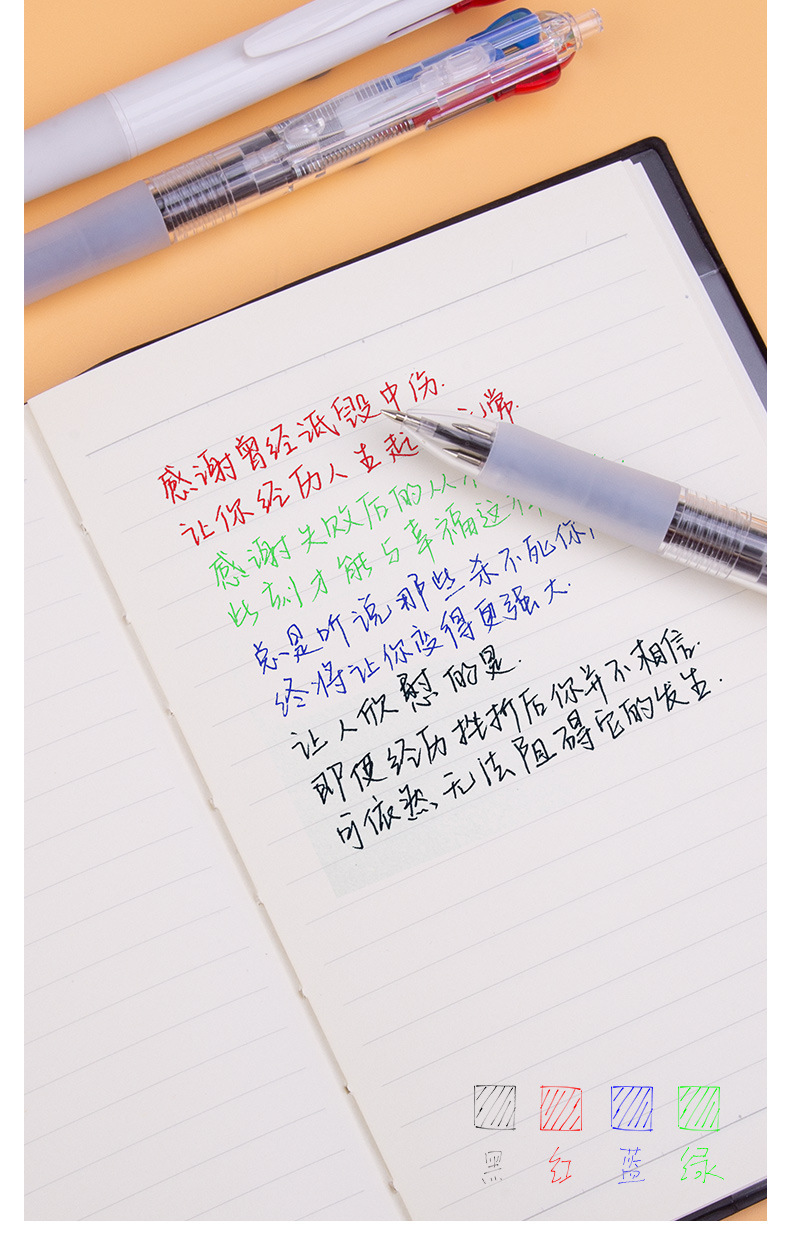 感谢曾经诋毁中伤.
让你经历人生起 常.
感谢失败后的从
此刻才能与幸福这
总是听说那些杀不死你,
终将让你变得更强大.
让人欣慰的是.
即使经历挫折后你并不相信.
可依然无法阻碍它的发生.
黑 红 蓝 绿